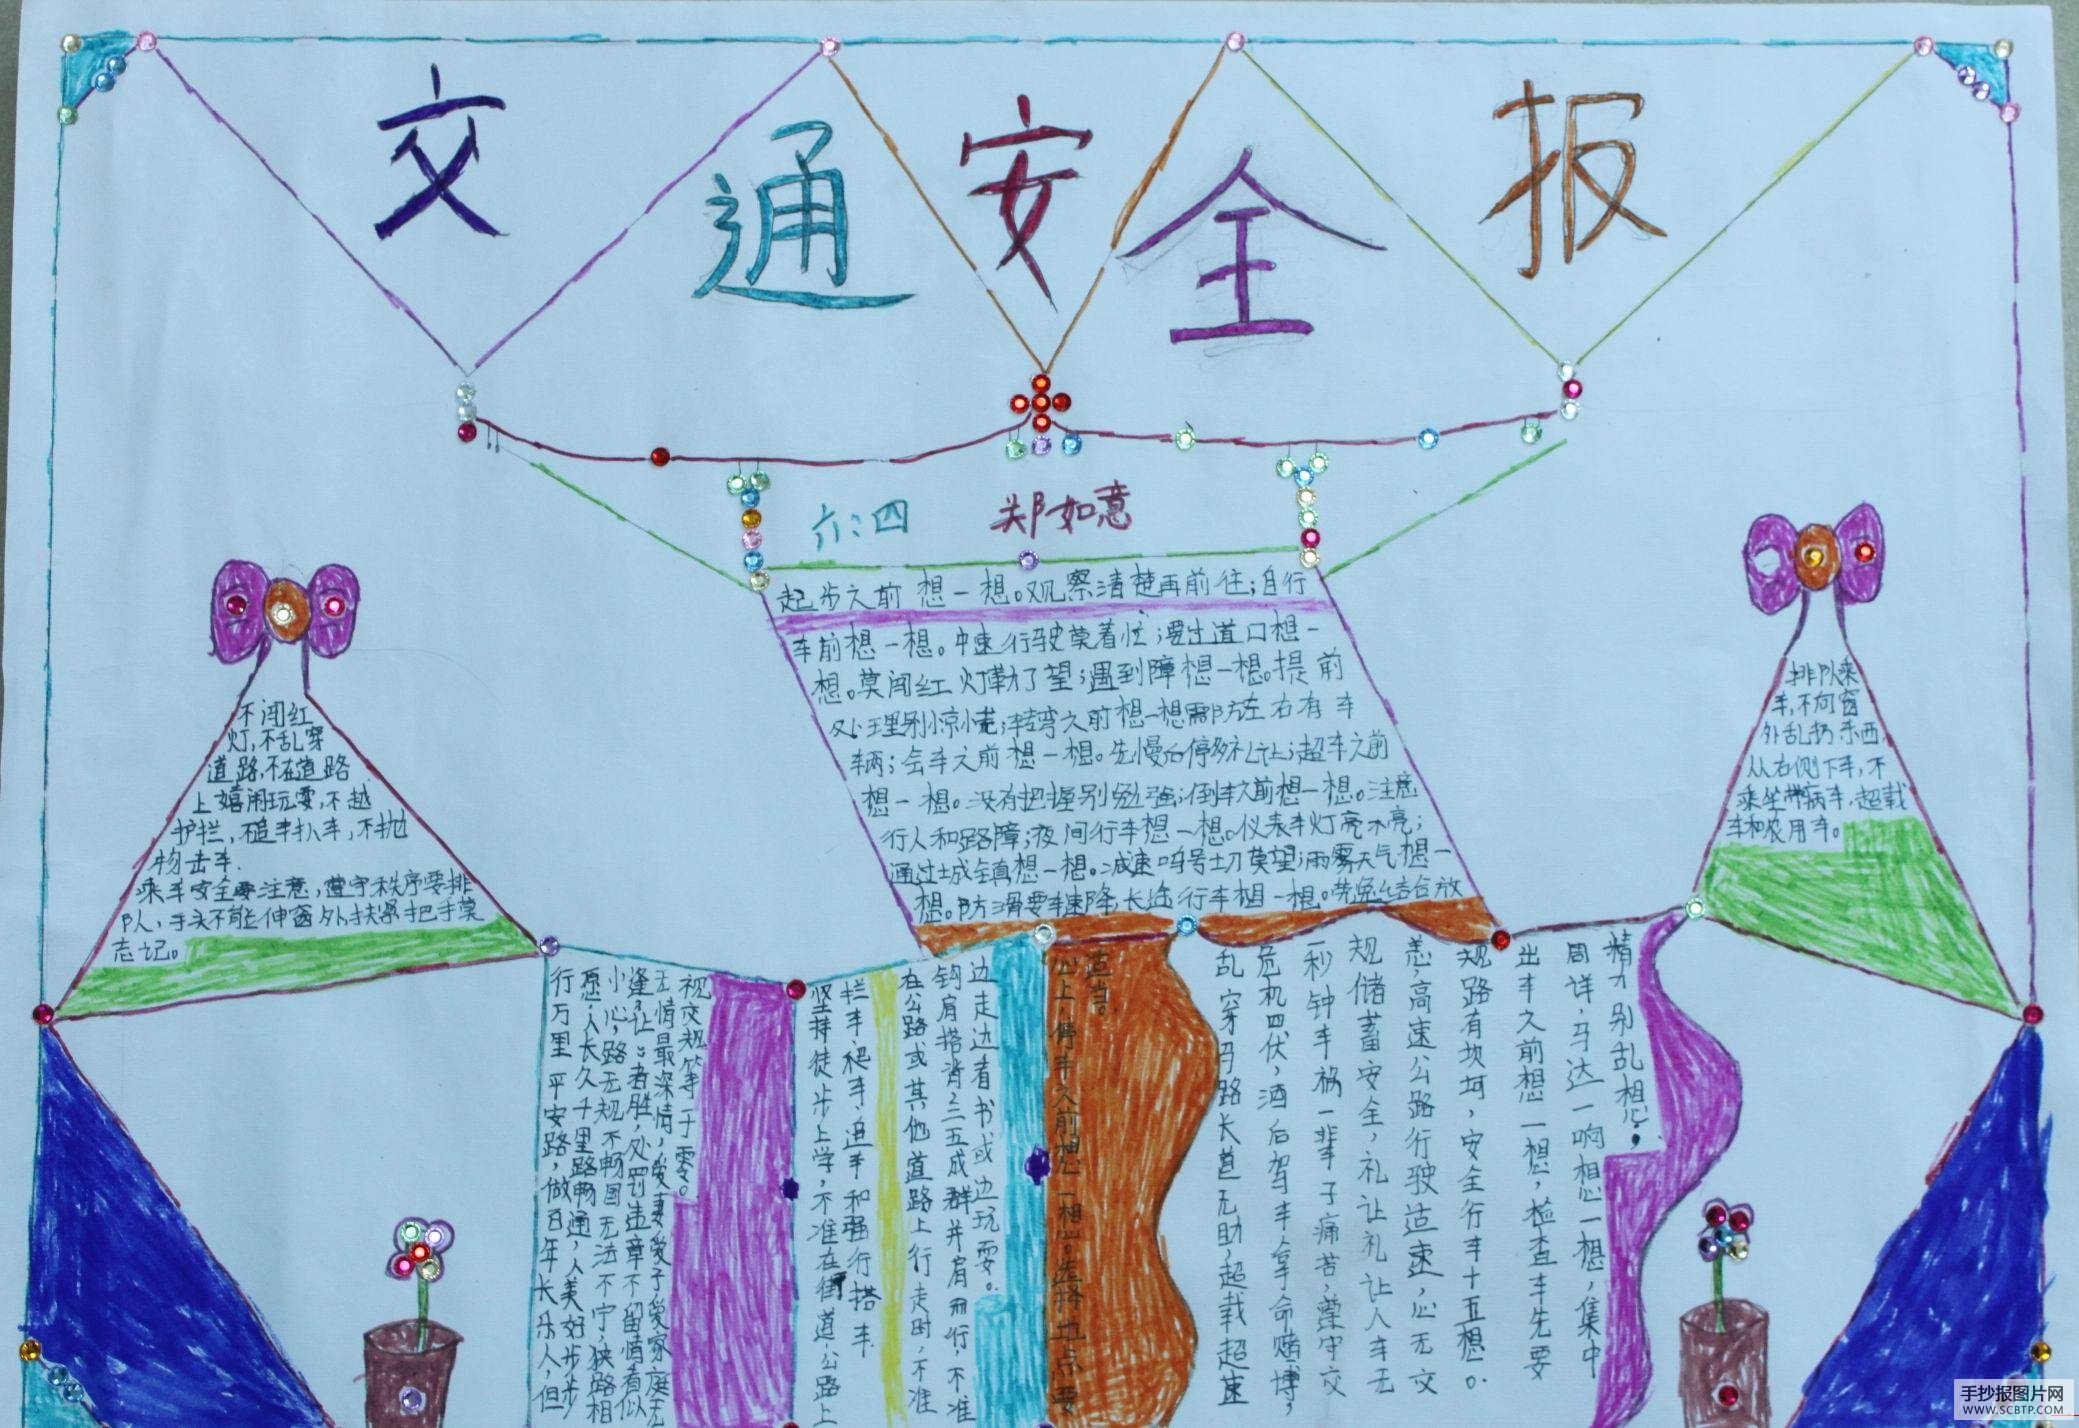 交通安全报
六:四 郑如意
起步之前想一想。观察清楚再前往;自行
车前想一想。中速行驶莫着忙;要出道口想一
想。莫闯红灯勤了望;遇到障想一想。提前
处理别惊慌;转弯之前想一想需防左右有车
辆;会车之前想一想。先慢后停多礼让;超车之前
想一想。没有把握别勉强;倒车之前想一想。注意
行人和路障;夜间行车想一想。仪表车灯亮不亮;
通过城镇想一想。减速鸣号切莫望;雨雾天气想一
想。防滑要车速降;长途行车想一想。劳逸结合放
不闯红
灯,不乱穿
道路,不在道路
上嬉闹玩耍,不越
护拦,不追车扒车,不抛
物击车.
乘车安全要注意,遵守秩序要排
队,手头不能伸窗外,扶紧把手莫
忘记。
排队乘
车,不向窗
外乱扔东西,
从右侧下车,不
乘坐带病车,超载
车和农用车。
精力别乱想;
周详,马达一响想一想,集中
出车之前想一想,检查车先要
规路有坎坷,安全行车十五想。
恙,高速公路行驶适速,心无交
规储蓄安全,礼让礼让人车无
一秒钟车祸一辈子痛苦,遵守交
危机四伏,酒后驾车拿命赌博,
乱穿马路长道无助,超载超速
适当。
心上,停车之前想一想。选择地点要
边走边看书或边玩耍。
钩肩搭背三五成群并肩而行,不准
在公路或其他道路上行走时,不准
拦车、耙车、追车和强行搭车.
坚持徒步上学,不准在街道、公路上
视交规等于零。
无情最深情,爱妻爱子爱家庭无
逢了让:者胜,处罚违章不留情有似
小心,路无规不畅国无法不宁,狭路相
愿,人长久千里路畅通,人美好步步
行万里平安路,做百年长乐人,但
手抄报图片网
WWW.SCBTP.COM